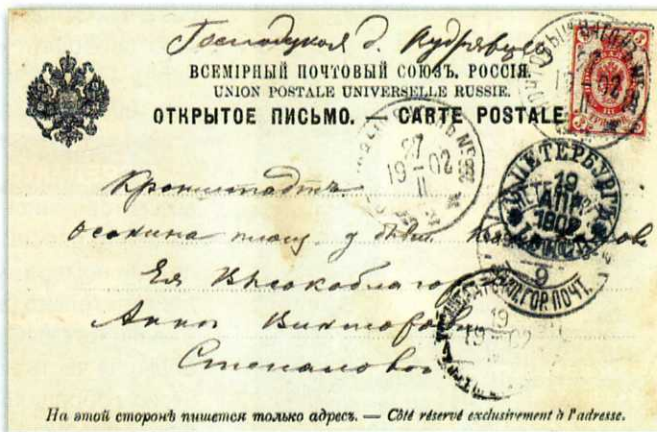 Господская д. Кудрявцева
ВСЕМІРНЫЙ ПОЧТОВЫЙ СОЮЗЪ. РОССІЯ.
UNION POSTALE UNIVERSELLE RUSSIE.
ОТКРЫТОЕ ПИСЬМО. — CARTE POSTALE
27
19-02
II
С.ПЕТЕРБУРГЪ
19
АПР
1902
9
ГОР.ПОЧТ.
Кронштадтъ
Осокина площ. д. бывш.
Ея Высокоблагор
Анне Викторовне
Степановой
19
19 02
На этой сторонѣ пишется только адресъ. — Côté réservé exclusivement à l'adresse.